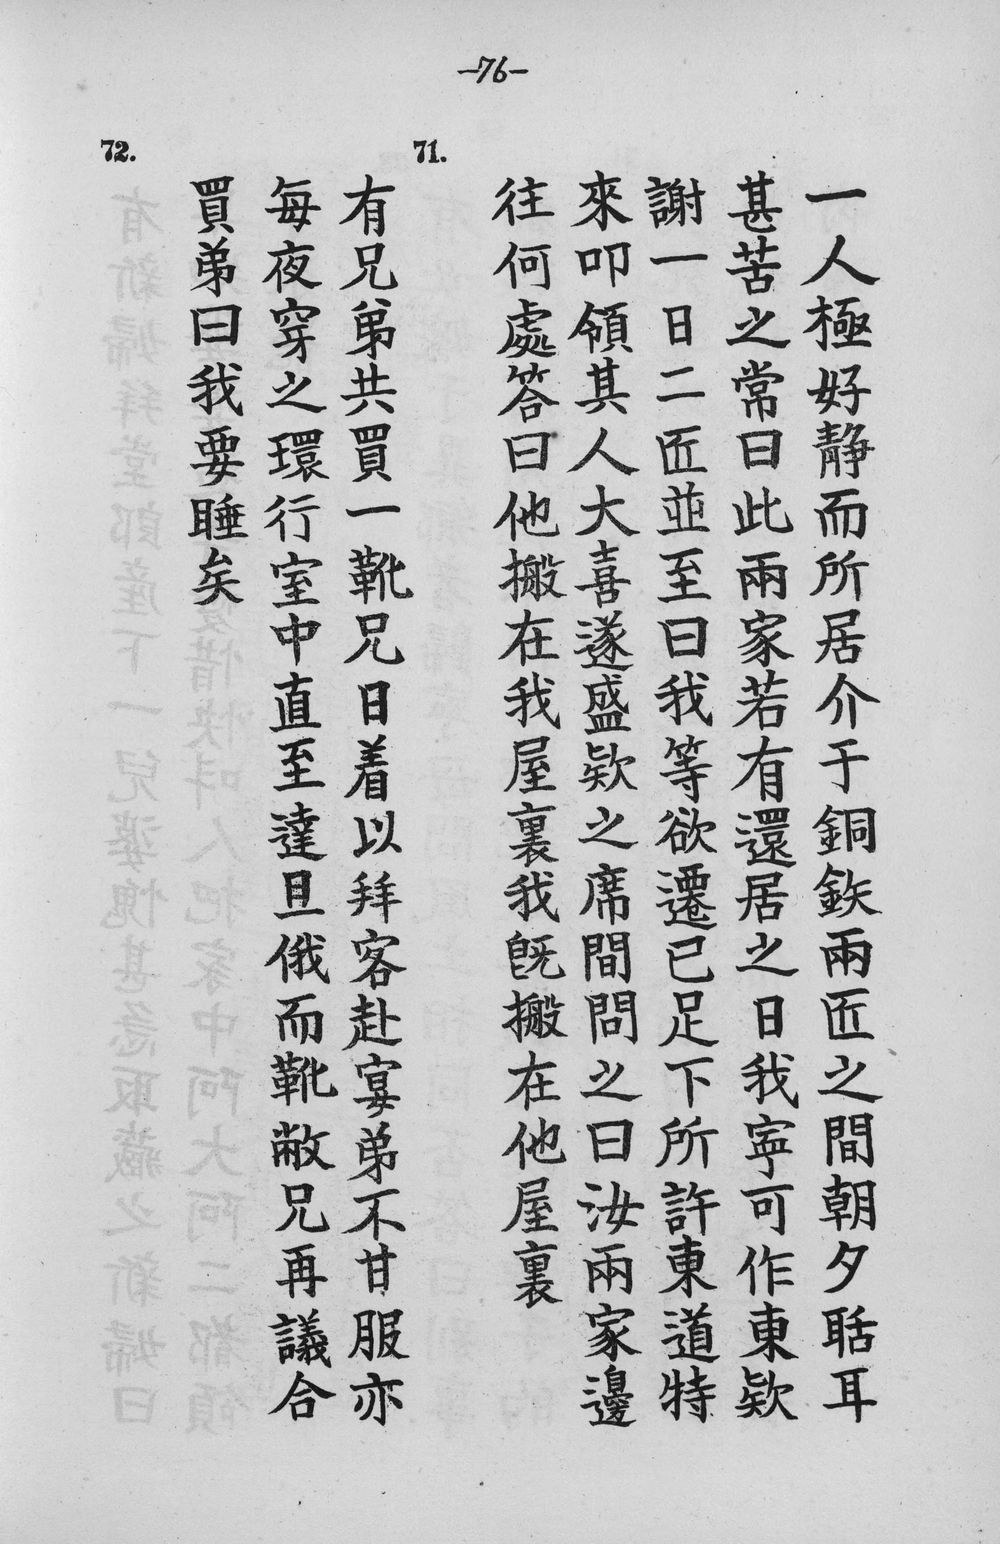 —76—
一人極好静而所居介于銅鉃兩匠之間朝夕聒耳
甚苦之常曰此兩家若有還居之日我寧可作東欵
謝一日二匠並至曰我等欲遷已足下所許東道特
來叩領其人大喜遂盛欵之席間問之曰汝兩家邊
往何處答曰他搬在我屋裏我旣搬在他屋裏
71.
有兄弟共買一靴兄日着以拜客赴宴弟不甘服亦
每夜穿之環行室中直至達旦俄而靴敝兄再議合
買弟曰我要睡矣
72.